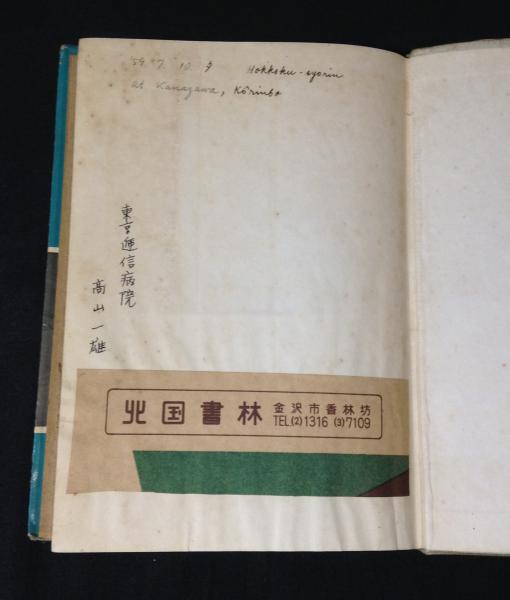 '59. 7. 10. 夕 Hokkoku-syorin
at Kanazawa, Kôrinbo
東京逓信病院
高山一雄
北国書林 金沢市香林坊
TEL(2)1316 (3)7109